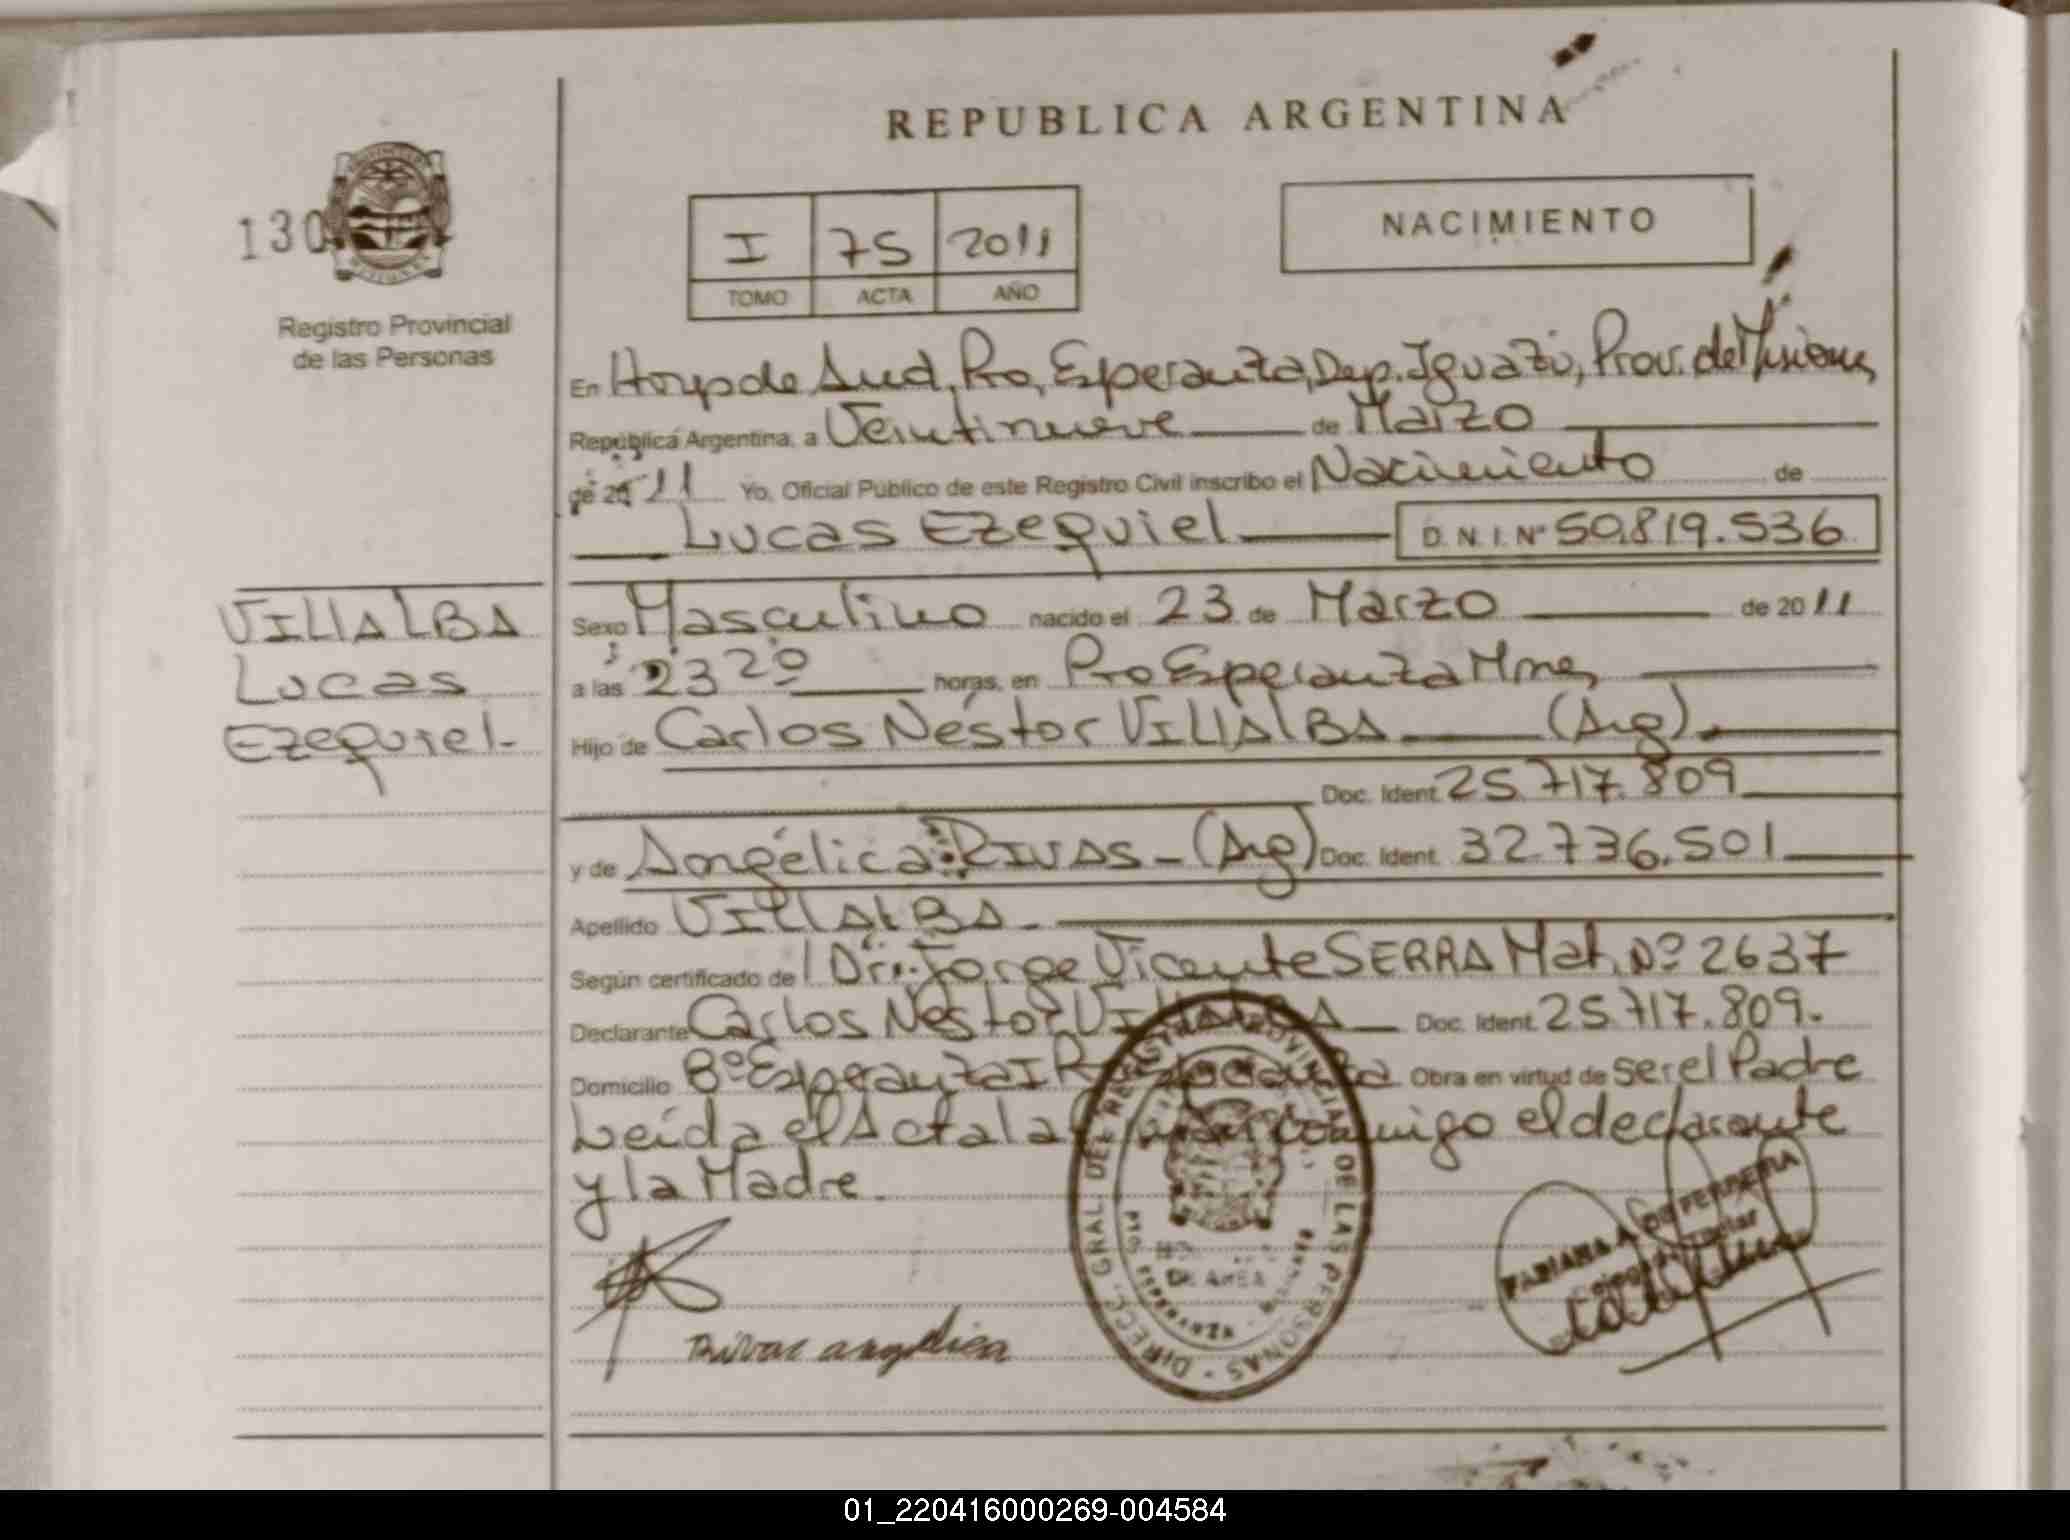 REPUBLICA ARGENTINA
130
Registro Provincial
de las Personas
I 75 2011
TOMO ACTA AÑO
NACIMIENTO
En Hosp de Aud, Pto, Esperanza, Dep. Iguazú, Prov. de Misiones
República Argentina, a Veintinueve de Marzo
de 20 11 Yo, Oficial Público de este Registro Civil inscribo el Nacimiento de
Lucas Ezequiel D.N.I. Nº 50.819.536
VILLALBA
Lucas
Ezequiel-
Sexo Masculino nacido el 23 de Marzo de 2011
a las 23 20 horas, en Pto Esperanza Mnes
Hijo de Carlos Néstor VILLALBA (Arg).
Doc. Ident. 25.717.809
y de Angélica RIVAS - (Arg) Doc. Ident. 32.736.501
Apellido VILLALBA-
Según certificado de l Dr. Jorge Vicente SERRA Mat. Nº 2637
Declarante Carlos Néstor VILLALBA Doc. Ident. 25.717.809.
Domicilio Bº Esperanza I Obra en virtud de ser el Padre
Leída el Acta la conmigo el declarante
y la Madre.
Rivas angelica
DIREC. GRAL. DEL REGISTRO PROVINCIAL DE LAS PERSONAS
DE AREA
FABIANA A. DE FERREIRA
01_220416000269-004584